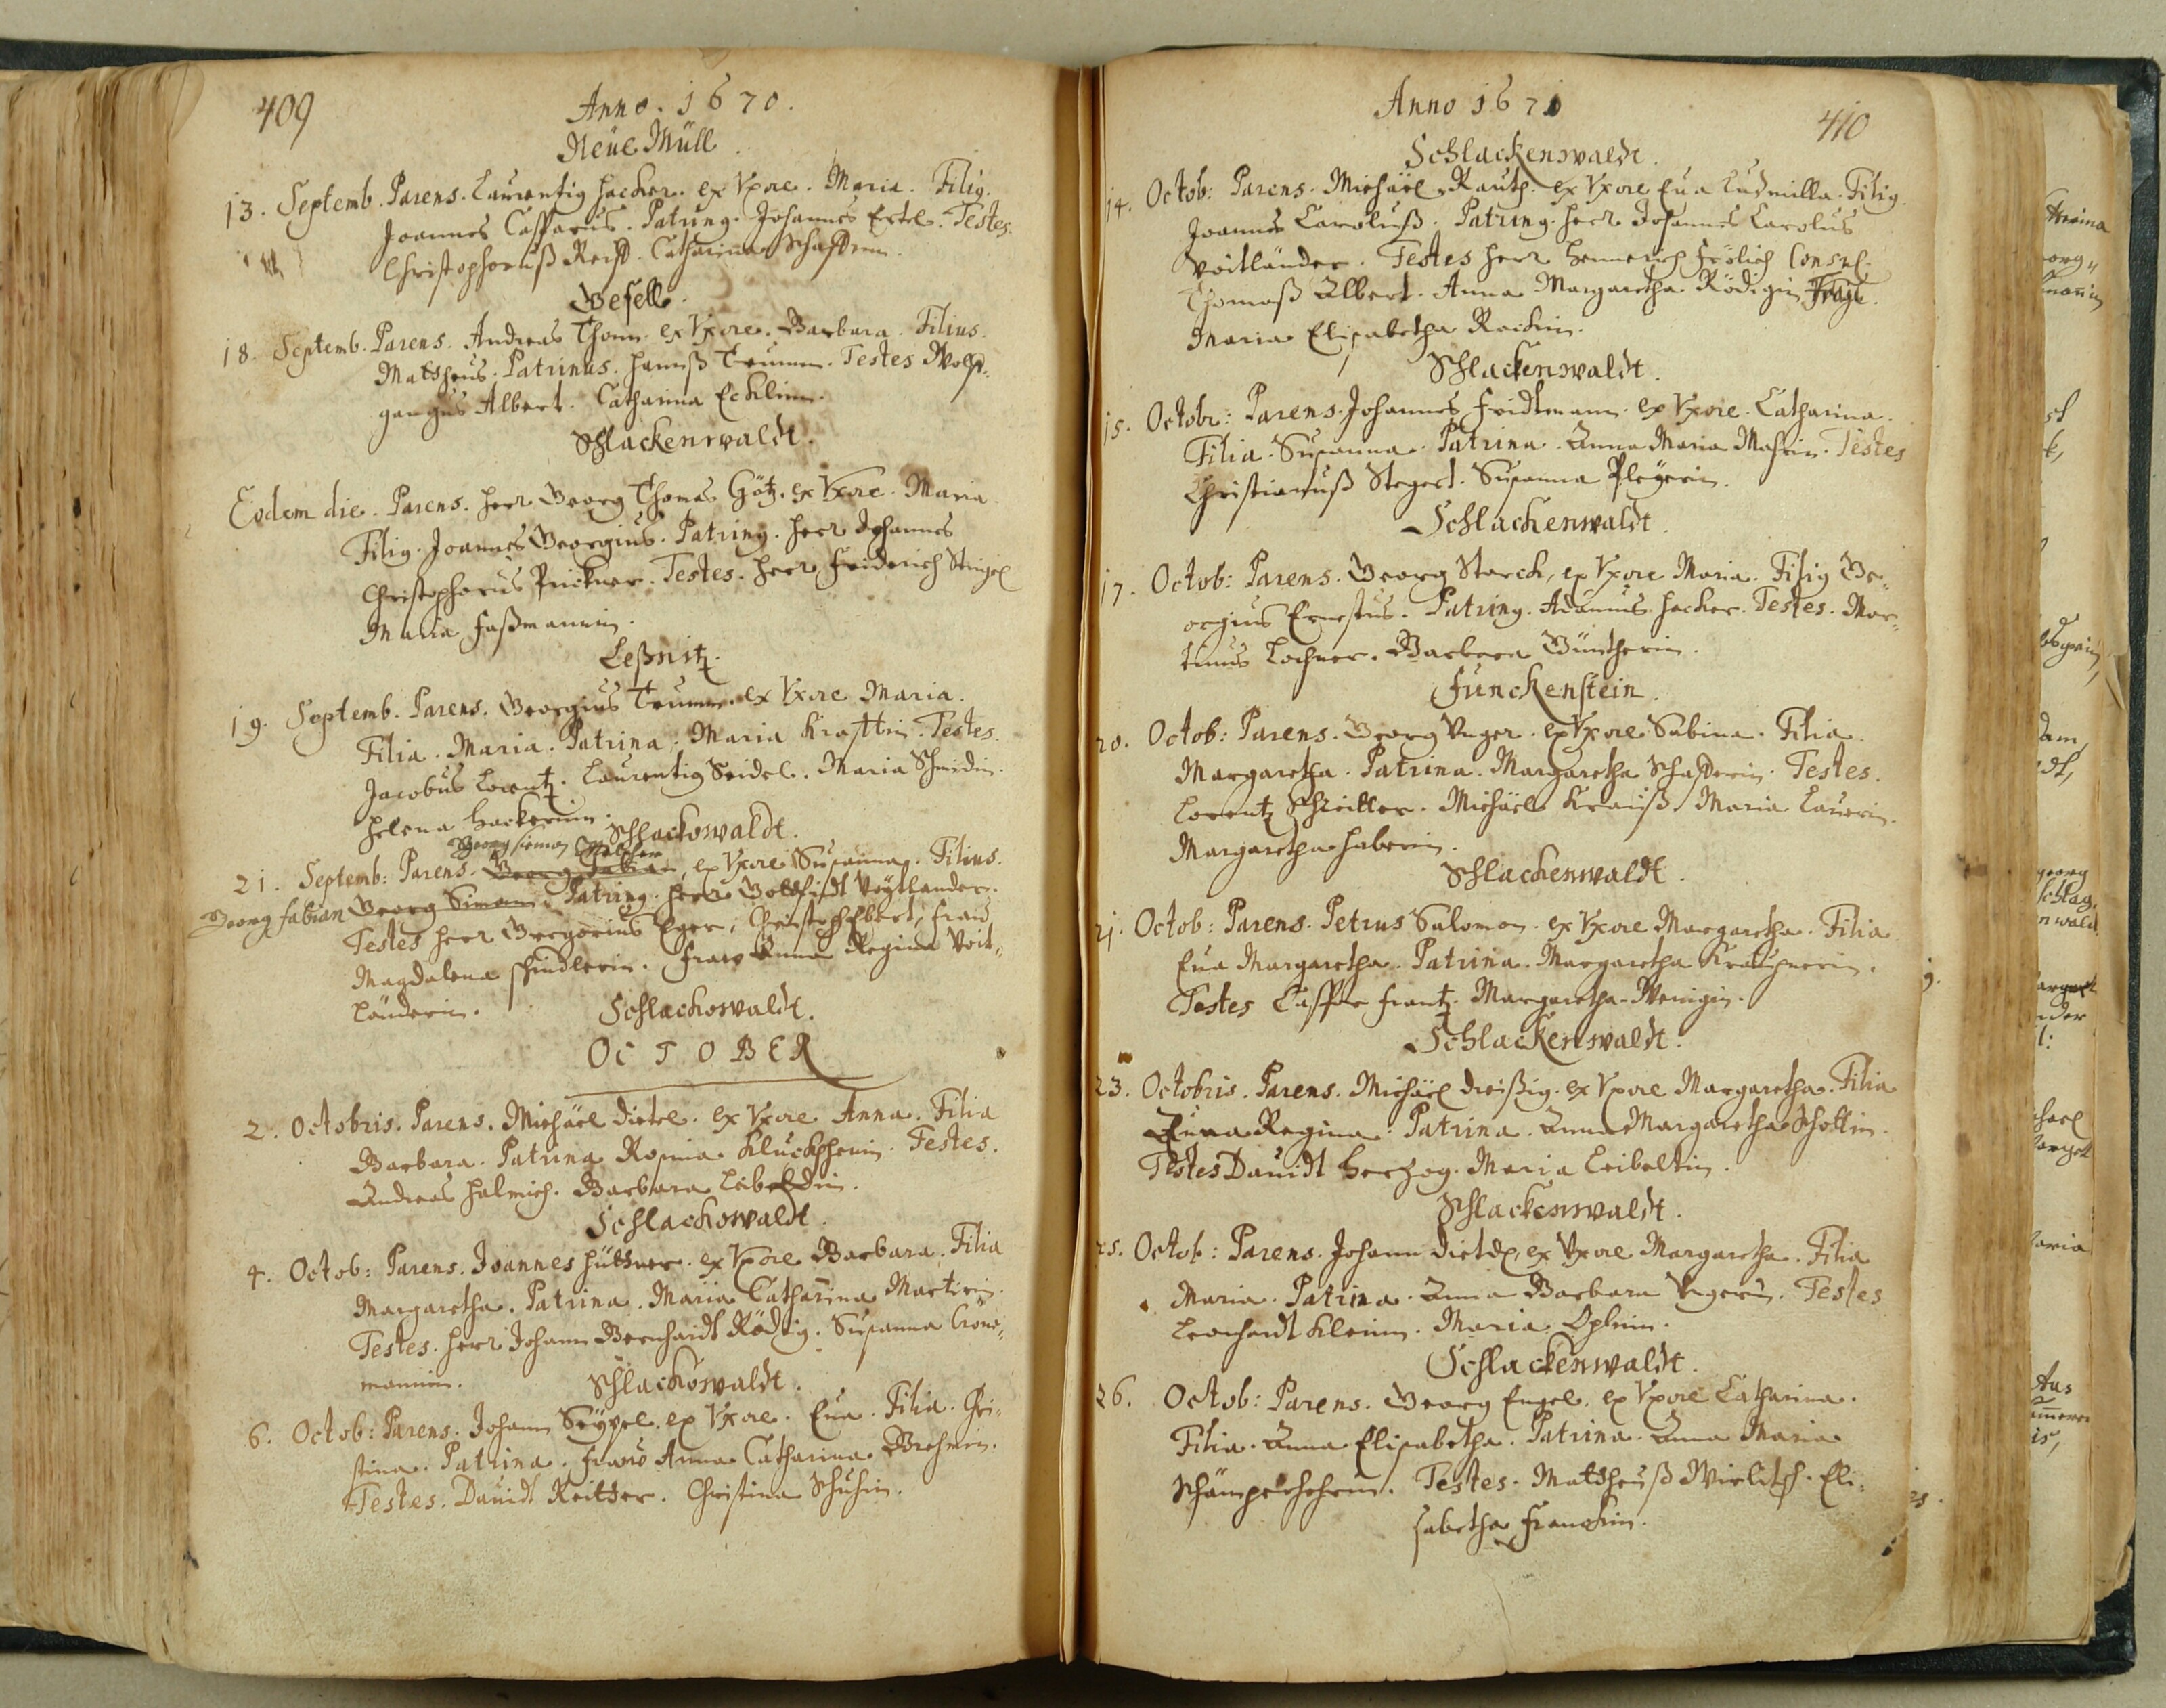 409
Anno. 1670.
Neüe Müll
13. Septemb. Parens. Laurentig Hacker. ex Vxore. Maria. Filig.
Joannes Casparus. Patring. Johannes Ertel. Testes.
Christophoruß Reiß. Catharina
Gesell.
18. Septemb. Parens. Andreas Thom. ex Vxore. Barbara. Filius.
Mattheus. Patrinus. Hannß Trumm. Testes Wolff-
gangus Albert. Catharina Ecklinn.
Schlackenwaldt.
Eodem die. Parens. Herr Georg Thomas Götz. ex Vxore. Maria
Filig. Joannes Georgius. Patring. Herr Johannes
Christophorus Pückner. Testes. Herr Friderich Stingel
Maria Faßmannin.
Leßnitz.
19. Septemb. Parens. Georgius Trumm. ex Vxore Maria.
Filia. Maria. Patrina. Maria Testes.
Jacobus Lorentz. Laurentig Seidel. Maria Schmidin.
Helena Hackerinn.
Schlackowaldt.
Georg Simon
21. Septemb: Parens. Georg Fabian, ex Vxore Susanna. Filius.
Georg Fabian Georg Simon. Patring. Herr Gottfridt Voytlander.
Testes Herr Gregorius Eger, Christoff Ebert, Fraw
Magdalena Schindlerin. Fraw Anna Regina Voit-
länderin.
Schlackowaldt.
OCTOBER
2. Octobris. Parens. Michäel Dietel. ex Vxore Anna. Filia
Barbara. Patrina Rosina Testes.
Andreas Halmich. Barbara Leibeldin.
Schlackowaldt.
4. Octob: Parens. Joannes Hüttner. ex Vxore Barbara. Filia
Margaretha. Patrina. Maria Catharina Martirin.
Testes. Herr Johann Bernhardt Rödig. Susanna Crone-
mannin.
Schlackowaldt.
6. Octob: Parens. Johann Seyvel. ex Vxore. Eua. Filia. Chri-
stina. Patrina. Fraw Anna Catharina Brehmin.
Testes. Dauidt Reitter. Christina Schuhin.
410
Anno 1670
Schlackenwaldt.
14. Octob: Parens. Michäel Rauth. ex Vxore Eua Ludmilla. Filig.
Joannes Caroluß. Patring. Herr Johannes Carolus
Voitländer. Testes Herr Hennerich Frölich Consul.
Thomaß Albert. Anna Margaretha Rödigin
Maria Elisabetha
Schlackenwaldt.
15. Octobr: Parens. Johannes Fridtmann. ex Vxore. Catharina.
Filia. Susanna. Patrina. Anna Maria Testes
Christianuß Stegert. Susanna Pleyerin.
Schlackenwaldt.
17. Octob: Parens. Georg Starck, ex Vxore Maria. Filig Ge-
orgius Ernestus. Patring. Adamus Hacker. Testes. Mar-
tinus Lochner. Barbara Güntherin.
Funckenstein.
20. Octob: Parens. Georg Vnger. ex Vxore Sabina. Filia.
Margaretha. Patrina. Margaretha Testes.
Lorentz Michäel Krauß. Maria Lauerin.
Margaretha Haberin.
Schlackenwaldt.
21. Octob: Parens. Petrus Salomon. ex Vxore Margaretha. Filia
Eua Margaretha. Patrina. Margaretha
Testes Casper Frantz. Margaretha Wenigin.
Schlackenwaldt.
23. Octobris. Parens. Michäel Dreißig. ex Vxore Margaretha. Filia
Anna Regina. Patrina. Anna Margaretha Schottin.
Testes Dauidt Herzog. Maria Leibeltin.
Schlackenwaldt.
25. Octob: Parens. Johann Dietel, ex Vxore Margaretha. Filia
Maria. Patrina. Anna Barbara Vngerin. Testes
Leonhardt Maria
Schlackenwaldt.
26. Octob: Parens. Georg Engel. ex Vxore Catharina.
Filia. Anna Elisabetha. Patrina. Anna Maria
Testes. Mattheuß Eli-
sabetha Franckin.